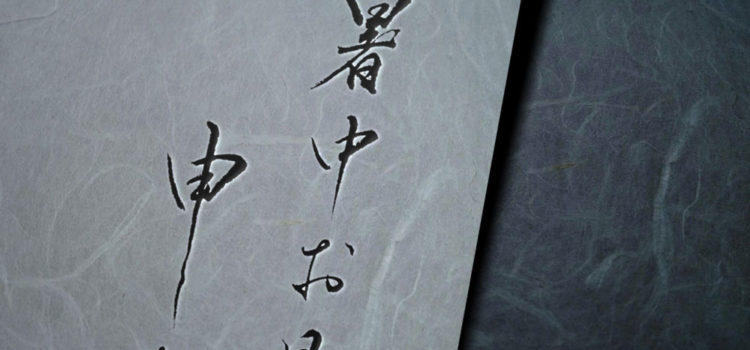 暑中お
申